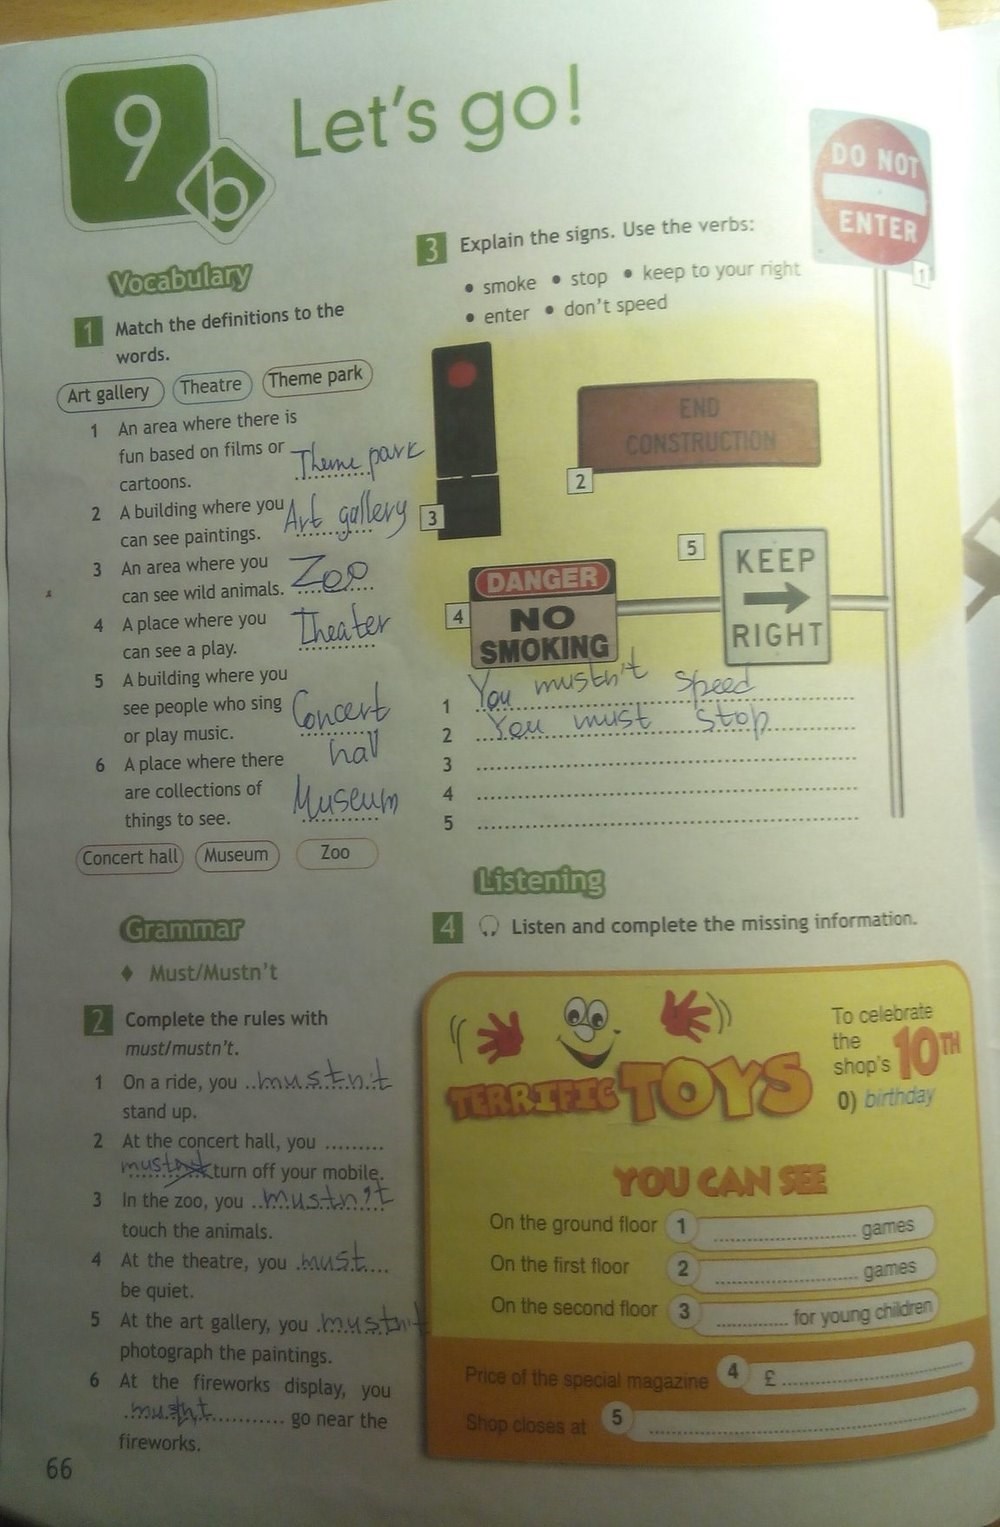 9
b
Let's go!
DO NOT
ENTER
1
Vocabulary
1 Match the definitions to the
words.
Art gallery Theatre Theme park
1 An area where there is
fun based on films or Theme park
cartoons.
2 A building where you Art gallery
can see paintings.
3 An area where you Zoo
can see wild animals.
4 A place where you Theater
can see a play.
5 A building where you
see people who sing Concert
or play music. hall
6 A place where there
are collections of Museum
things to see.
Concert hall Museum Zoo
Grammar
♦ Must/Mustn't
2 Complete the rules with
must/mustn't.
1 On a ride, you ..mustn't
stand up.
2 At the concert hall, you .........
must turn off your mobile.
3 In the zoo, you ..mustn't
touch the animals.
4 At the theatre, you .must....
be quiet.
5 At the art gallery, you .mustn't
photograph the paintings.
6 At the fireworks display, you
.............. go near the
fireworks.
66
3 Explain the signs. Use the verbs:
• smoke • stop • keep to your right
• enter • don't speed
END
CONSTRUCTION
2
3
5
KEEP
RIGHT
4
DANGER
NO
SMOKING
1 You mustn't speed
2 You must stop
3
4
5
Listening
4 Listen and complete the missing information.
TERRIFIC TOYS
To celebrate
the
shop's 10TH
0) birthday
YOU CAN SEE
On the ground floor 1 .................... games
On the first floor 2 .................... games
On the second floor 3 .............. for young children
Price of the special magazine 4 £ ....................
Shop closes at 5 ....................